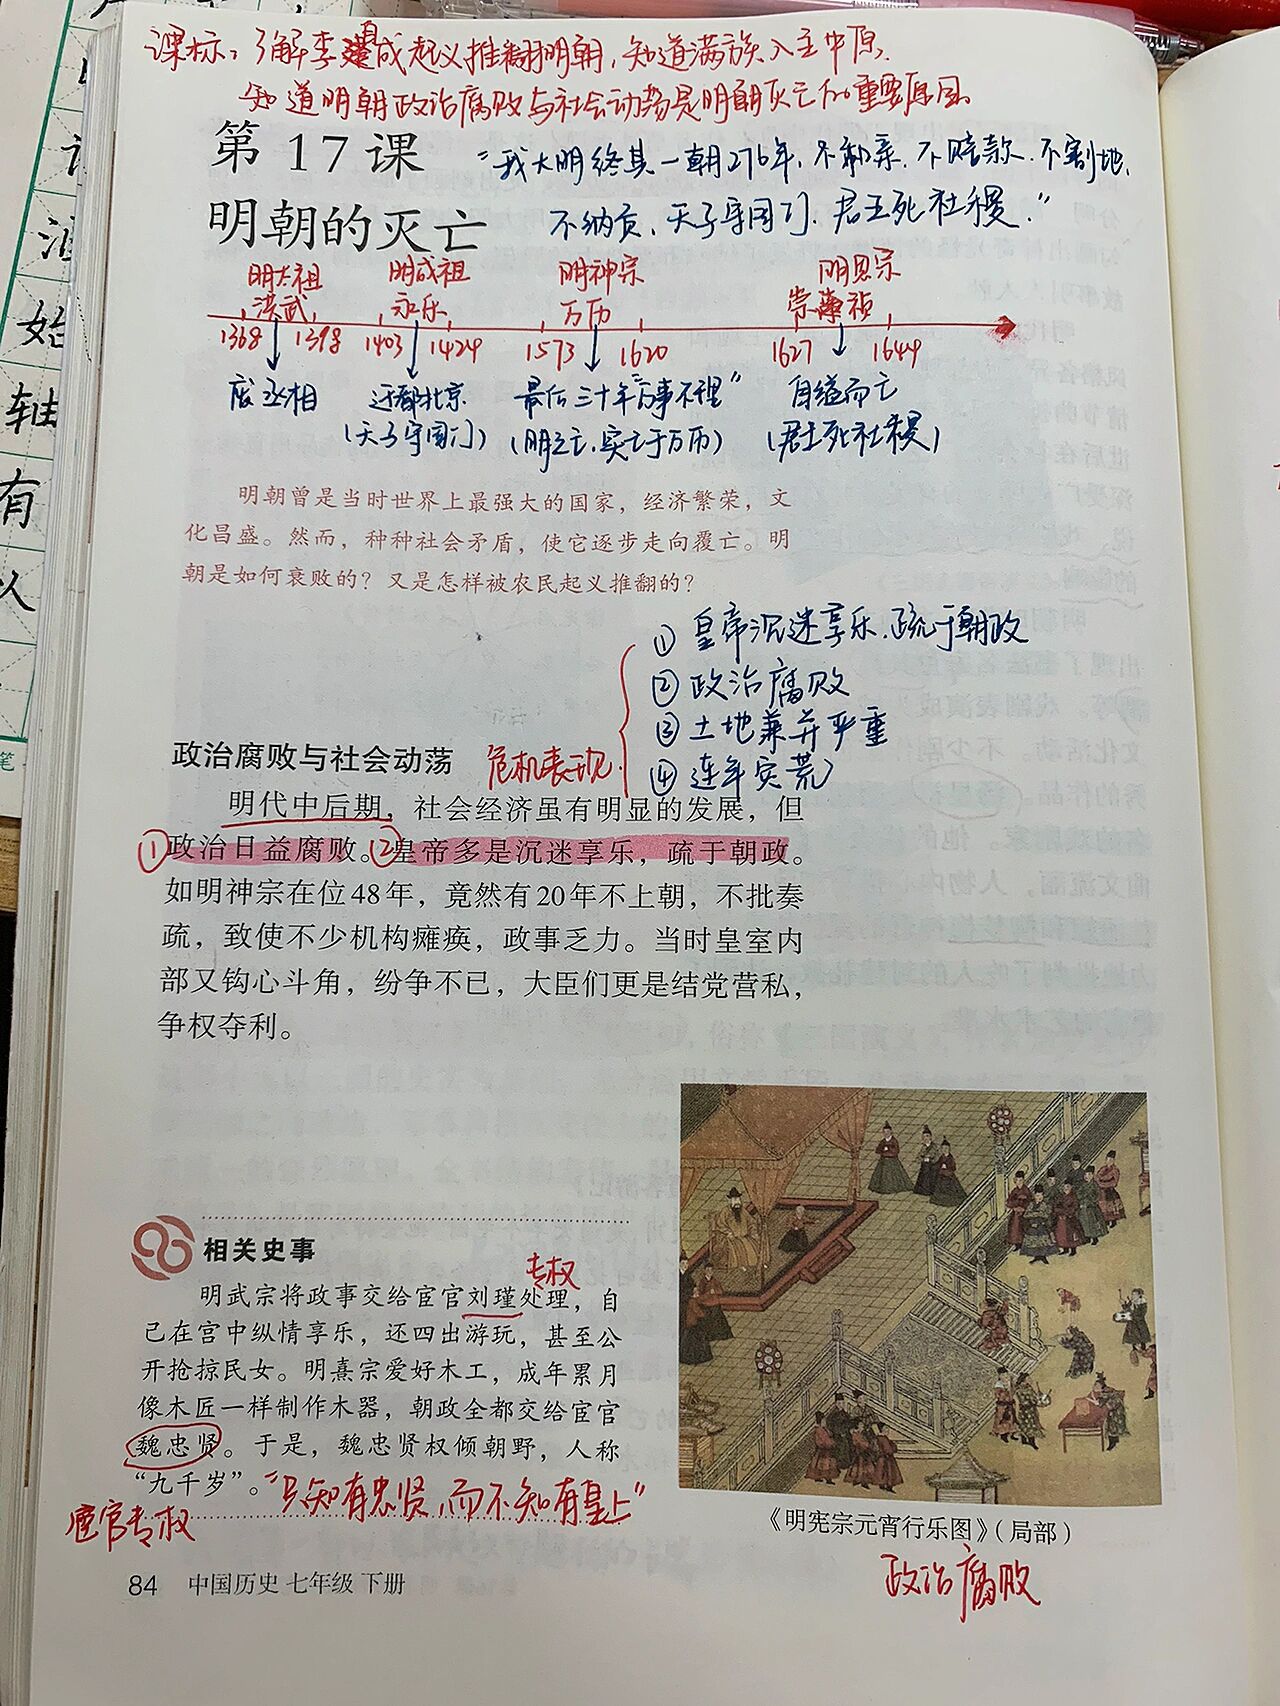 课标：了解李自成起义推翻明朝，知道满族入主中原，
知道明朝政治腐败与社会动荡是明朝灭亡的重要原因。
第17课
明朝的灭亡
“我大明终其一朝276年，不和亲.不赔款.不割地.
不纳贡、天子守国门.君王死社稷.”
明太祖 明成祖 明神宗 明思宗
洪武 永乐 万历 崇祯
1368 1398 1403 1424 1573 1620 1627 1644
废丞相 迁都北京 最后三十年“万事不理” 自缢而亡
(天子守国门) (明之亡.实亡于万历) (君王死社稷)
明朝曾是当时世界上最强大的国家，经济繁荣，文
化昌盛。然而，种种社会矛盾，使它逐步走向覆亡。明
朝是如何衰败的？又是怎样被农民起义推翻的？
① 皇帝沉迷享乐.疏于朝政
② 政治腐败
③ 土地兼并严重
④ 连年灾荒
政治腐败与社会动荡 危机表现
明代中后期，社会经济虽有明显的发展，但
①政治日益腐败。②皇帝多是沉迷享乐，疏于朝政。
如明神宗在位48年，竟然有20年不上朝，不批奏
疏，致使不少机构瘫痪，政事乏力。当时皇室内
部又钩心斗角，纷争不已，大臣们更是结党营私，
争权夺利。
相关史事
专权
明武宗将政事交给宦官刘瑾处理，自
己在宫中纵情享乐，还四出游玩，甚至公
开抢掠民女。明熹宗爱好木工，成年累月
像木匠一样制作木器，朝政全都交给宦官
魏忠贤。于是，魏忠贤权倾朝野，人称
“九千岁”。“只知有忠贤，而不知有皇上”
宦官专权
《明宪宗元宵行乐图》（局部）
政治腐败
84 中国历史 七年级 下册
始
轴
有
人
笔